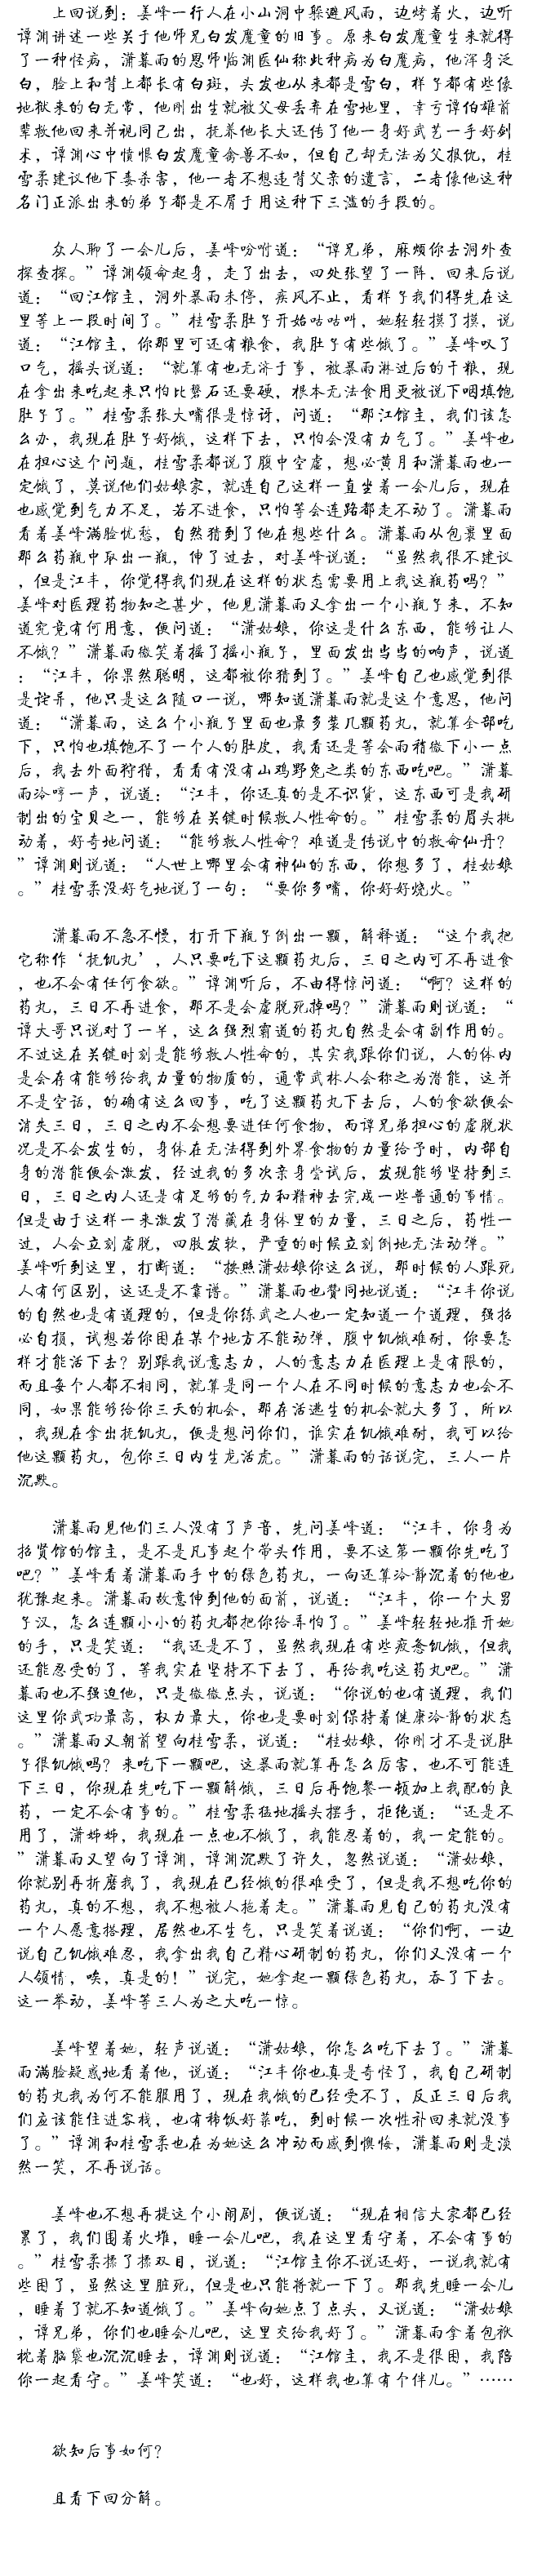 上回说到：姜峰一行人在小山洞中躲避风雨，边烤着火，边听
谭渊讲述一些关于他师兄白发魔童的旧事。原来白发魔童生来就得
了一种怪病，潇暮雨的恩师临渊医仙称此种病为白魔病，他浑身泛
白，脸上和背上都长有白斑，头发也从来都是雪白，样子都有些像
地狱来的白无常，他刚出生就被父母丢弃在雪地里，幸亏谭伯雄前
辈救他回来并视同己出，抚养他长大还传了他一身好武艺一手好剑
术，谭渊心中愤恨白发魔童禽兽不如，但自己却无法为父报仇，桂
雪柔建议他下毒杀害，他一者不想违背父亲的遗言，二者像他这种
名门正派出来的弟子都是不屑于用这种下三滥的手段的。
众人聊了一会儿后，姜峰吩咐道：“谭兄弟，麻烦你去洞外查
探查探。”谭渊领命起身，走了出去，四处张望了一阵，回来后说
道：“回江馆主，洞外暴雨未停，疾风不止，看样子我们得先在这
里等上一段时间了。”桂雪柔肚子开始咕咕叫，她轻轻摸了摸，说
道：“江馆主，你那里可还有粮食，我肚子有些饿了。”姜峰叹了
口气，摇头说道：“就算有也无济于事，被暴雨淋过后的干粮，现
在拿出来吃起来只怕比磐石还要硬，根本无法食用更被说下咽填饱
肚子了。”桂雪柔张大嘴很是惊讶，问道：“那江馆主，我们该怎
么办，我现在肚子好饿，这样下去，只怕会没有力气了。”姜峰也
在担心这个问题，桂雪柔都说了腹中空虚，想必黄月和潇暮雨也一
定饿了，莫说他们姑娘家，就连自己这样一直坐着一会儿后，现在
也感觉到气力不足，若不进食，只怕等会连路都走不动了。潇暮雨
看着姜峰满脸忧愁，自然猜到了他在想些什么。潇暮雨从包裹里面
那么药瓶中取出一瓶，伸了过去，对姜峰说道：“虽然我很不建议
，但是江丰，你觉得我们现在这样的状态需要用上我这瓶药吗？”
姜峰对医理药物知之甚少，他见潇暮雨又拿出一个小瓶子来，不知
道究竟有何用意，便问道：“潇姑娘，你这是什么东西，能够让人
不饿？”潇暮雨微笑着摇了摇小瓶子，里面发出当当的响声，说道
：“江丰，你果然聪明，这都被你猜到了。”姜峰自己也感觉到很
是诧异，他只是这么随口一说，哪知道潇暮雨就是这个意思，他问
道：“潇暮雨，这么个小瓶子里面也最多装几颗药丸，就算全部吃
下，只怕也填饱不了一个人的肚皮，我看还是等会雨稍微下小一点
后，我去外面狩猎，看看有没有山鸡野兔之类的东西吃吧。”潇暮
雨冷哼一声，说道：“江丰，你还真的是不识货，这东西可是我研
制出的宝贝之一，能够在关键时候救人性命的。”桂雪柔的眉头挑
动着，好奇地问道：“能够救人性命？难道是传说中的救命仙丹？
”谭渊则说道：“人世上哪里会有神仙的东西，你想多了，桂姑娘
。”桂雪柔没好气地说了一句：“要你多嘴，你好好烧火。”
潇暮雨不急不慢，打开下瓶子倒出一颗，解释道：“这个我把
它称作‘抚饥丸’，人只要吃下这颗药丸后，三日之内可不再进食
，也不会有任何食欲。”谭渊听后，不由得惊问道：“啊？这样的
药丸，三日不再进食，那不是会虚脱死掉吗？”潇暮雨则说道：“
谭大哥只说对了一半，这么强烈霸道的药丸自然是会有副作用的。
不过这在关键时刻是能够救人性命的，其实我跟你们说，人的体内
是会存有能够给我力量的物质的，通常武林人会称之为潜能，这并
不是空话，的确有这么回事，吃了这颗药丸下去后，人的食欲便会
消失三日，三日之内不会想要进任何食物，而谭兄弟担心的虚脱状
况是不会发生的，身体在无法得到外界食物的力量给予时，内部自
身的潜能便会激发，经过我的多次亲身尝试后，发现能够坚持到三
日，三日之内人还是有足够的气力和精神去完成一些普通的事情。
但是由于这样一来激发了潜藏在身体里的力量，三日之后，药性一
过，人会立刻虚脱，四肢发软，严重的时候立刻倒地无法动弹。”
姜峰听到这里，打断道：“按照潇姑娘你这么说，那时候的人跟死
人有何区别，这还是不靠谱。”潇暮雨也赞同地说道：“江丰你说
的自然也是有道理的，但是你练武之人也一定知道一个道理，强招
必自损，试想若你困在某个地方不能动弹，腹中饥饿难耐，你要怎
样才能活下去？别跟我说意志力，人的意志力在医理上是有限的，
而且每个人都不相同，就算是同一个人在不同时候的意志力也会不
同，如果能够给你三天的机会，那存活逃生的机会就大多了，所以
，我现在拿出抚饥丸，便是想问你们，谁实在饥饿难耐，我可以给
他这颗药丸，包你三日内生龙活虎。”潇暮雨的话说完，三人一片
沉默。
潇暮雨见他们三人没有了声音，先问姜峰道：“江丰，你身为
招贤馆的馆主，是不是凡事起个带头作用，要不这第一颗你先吃了
吧？”姜峰看着潇暮雨手中的绿色药丸，一向还算冷静沉着的他也
犹豫起来。潇暮雨故意伸到他的面前，说道：“江丰，你一个大男
子汉，怎么连颗小小的药丸都把你给弄怕了。”姜峰轻轻地推开她
的手，只是笑道：“我还是不了，虽然我现在有些疲惫饥饿，但我
还能忍受的了，等我实在坚持不下去了，再给我吃这药丸吧。”潇
暮雨也不强迫他，只是微微点头，说道：“你说的也有道理，我们
这里你武功最高，权力最大，你也是要时刻保持着健康冷静的状态
。”潇暮雨又朝前望向桂雪柔，说道：“桂姑娘，你刚才不是说肚
子很饥饿吗？来吃下一颗吧，这暴雨就算再怎么厉害，也不可能连
下三日，你现在先吃下一颗解饿，三日后再饱餐一顿加上我配的良
药，一定不会有事的。”桂雪柔猛地摇头摆手，拒绝道：“还是不
用了，潇姊姊，我现在一点也不饿了，我能忍着的，我一定能的。
”潇暮雨又望向了谭渊，谭渊沉默了许久，忽然说道：“潇姑娘，
你就别再折磨我了，我现在已经饿的很难受了，但是我不想吃你的
药丸，真的不想，我不想被人拖着走。”潇暮雨见自己的药丸没有
一个人愿意搭理，居然也不生气，只是笑着说道：“你们啊，一边
说自己饥饿难忍，我拿出我自己精心研制的药丸，你们又没有一个
人领情，唉，真是的！”说完，她拿起一颗绿色药丸，吞了下去。
这一举动，姜峰等三人为之大吃一惊。
姜峰望着她，轻声说道：“潇姑娘，你怎么吃下去了。”潇暮
雨满脸疑惑地看着他，说道：“江丰你也真是奇怪了，我自己研制
的药丸我为何不能服用了，现在我饿的已经受不了，反正三日后我
们应该能住进客栈，也有稀饭好菜吃，到时候一次性补回来就没事
了。”谭渊和桂雪柔也在为她这么冲动而感到懊悔，潇暮雨则是淡
然一笑，不再说话。
姜峰也不想再提这个小闹剧，便说道：“现在相信大家都已经
累了，我们围着火堆，睡一会儿吧，我在这里看守着，不会有事的
。”桂雪柔揉了揉双目，说道：“江馆主你不说还好，一说我就有
些困了，虽然这里脏死，但是也只能将就一下了。那我先睡一会儿
，睡着了就不知道饿了。”姜峰向她点了点头，又说道：“潇姑娘
，谭兄弟，你们也睡会儿吧，这里交给我好了。”潇暮雨拿着包袱
枕着脑袋也沉沉睡去，谭渊则说道：“江馆主，我不是很困，我陪
你一起看守。”姜峰笑道：“也好，这样我也算有个伴儿。”……
欲知后事如何？
且看下回分解。